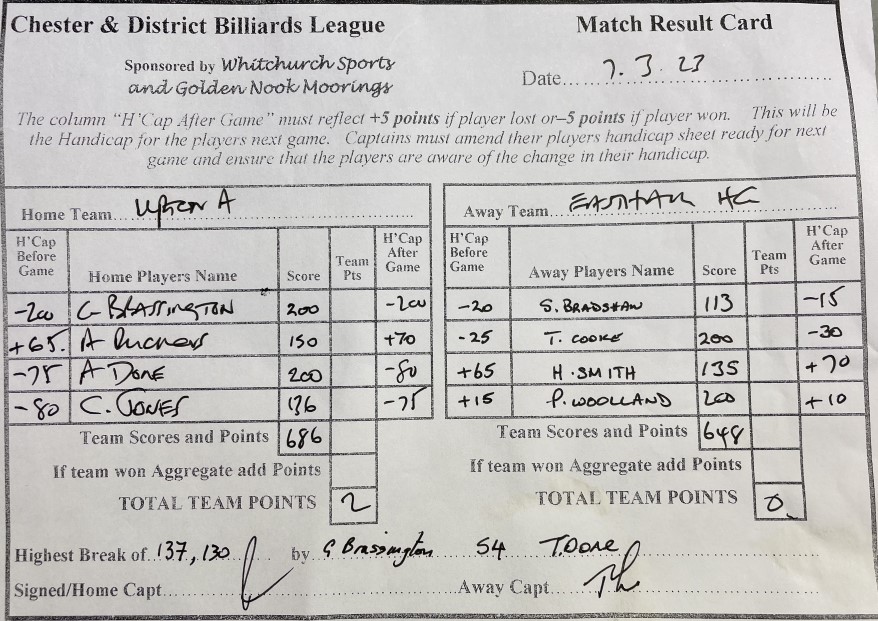 Chester & District Billiards League
Match Result Card
Sponsored by Whitchurch Sports
and Golden Nook Moorings
Date 7.3.23
The column "H'Cap After Game" must reflect +5 points if player lost or–5 points if player won. This will be
the Handicap for the players next game. Captains must amend their players handicap sheet ready for next
game and ensure that the players are aware of the change in their handicap.
Home Team Upton A
H'Cap Before Game Home Players Name Score Team Pts H'Cap After Game
-200 G BRASSINGTON 200 -200
+65. A 150 +70
-75 A DONE 200 -80
-80 C. JONES 136 -75
Team Scores and Points 686
If team won Aggregate add Points
TOTAL TEAM POINTS 2
Away Team EASTHAM HG
H'Cap Before Game Away Players Name Score Team Pts H'Cap After Game
-20 S. BRADSHAW 113 -15
-25 T. COOKE 200 -30
+65 H. SMITH 135 +70
+15 P. WOOLLAND 200 +10
Team Scores and Points 648
If team won Aggregate add Points
TOTAL TEAM POINTS 0
Highest Break of 137, 130 by G Brassington 54 T. Done
Signed/Home Capt Away Capt